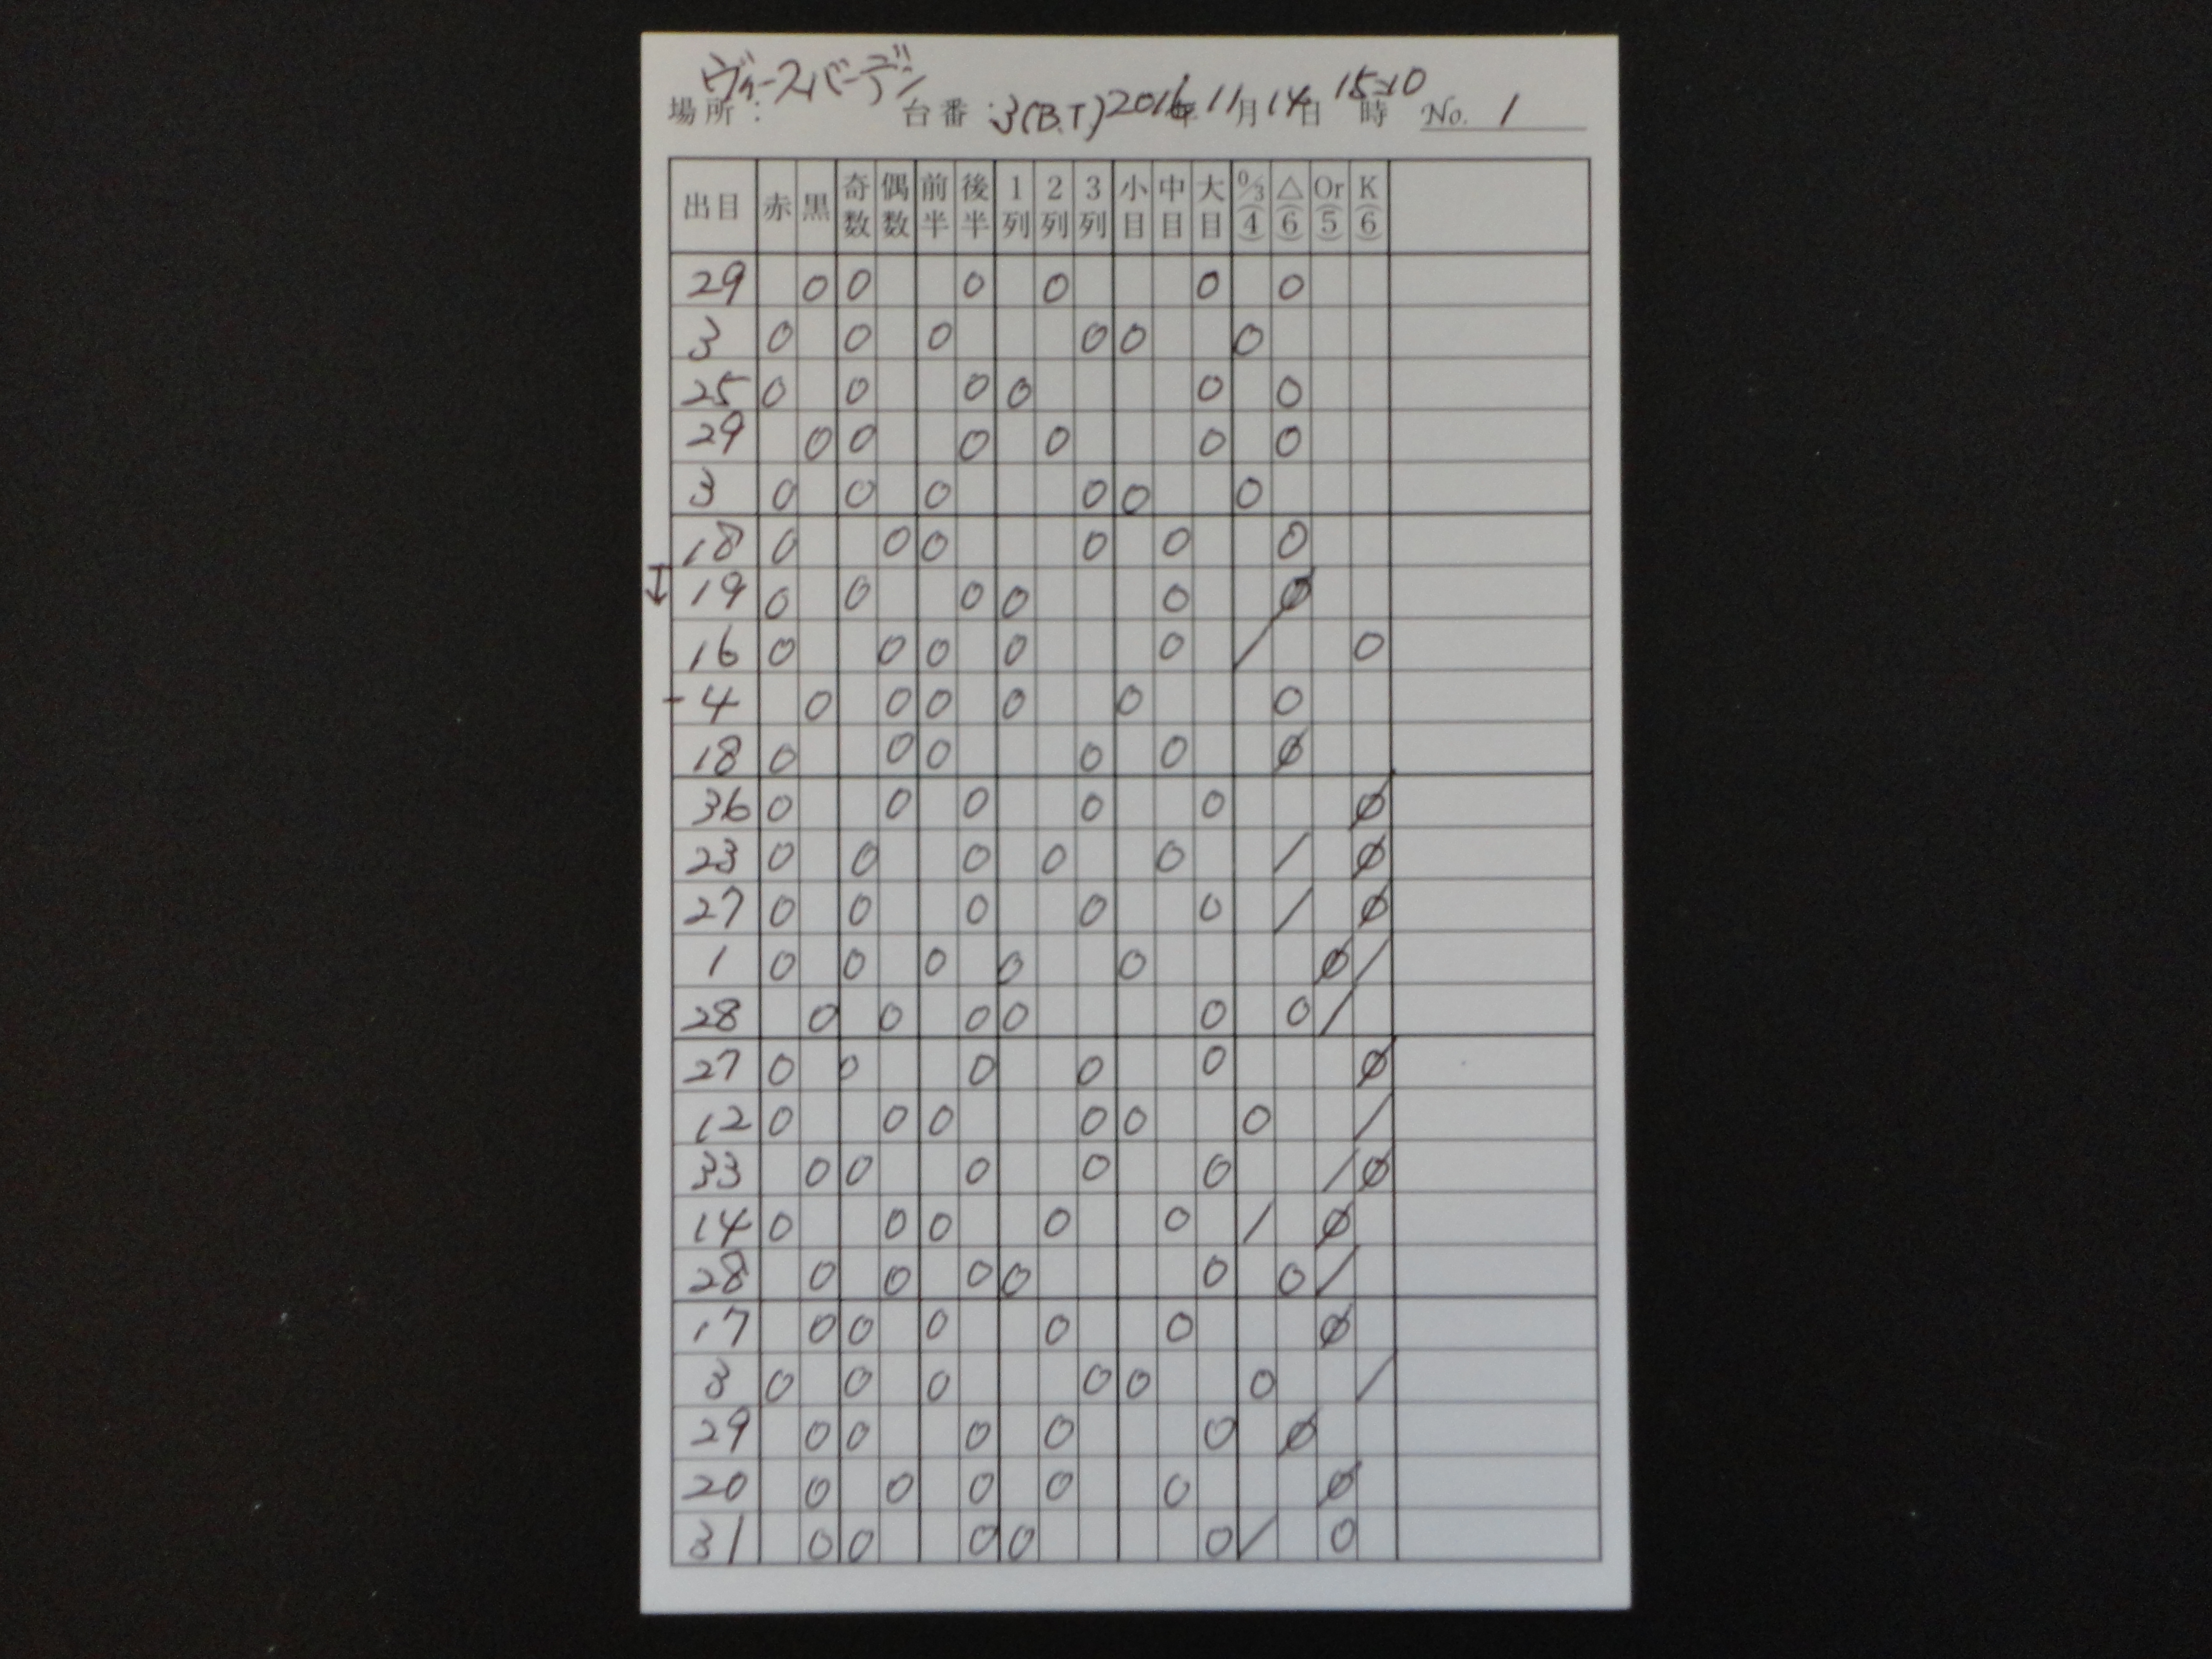 ヴィースバーデン
場所： 台番：3(B.T) 2016年 11月 14日 15:10時 No. 1
出目 赤 黒 奇数 偶数 前半 後半 1列 2列 3列 小目 中目 大目 0/3(4) △(6) Or(5) K(6)
29 0 0 0 0 0 0
3 0 0 0 0 0 0
25 0 0 0 0 0 0
29 0 0 0 0 0 0
3 0 0 0 0 0 0
18 0 0 0 0 0 0
19 0 0 0 0 0 Ø
16 0 0 0 0 0 / 0
4 0 0 0 0 0 0
18 0 0 0 0 0 Ø
36 0 0 0 0 0 Ø
23 0 0 0 0 0 / Ø
27 0 0 0 0 0 / Ø
1 0 0 0 0 0 Ø /
28 0 0 0 0 0 0 /
27 0 0 0 0 0 Ø
12 0 0 0 0 0 0 /
33 0 0 0 0 0 / Ø
14 0 0 0 0 0 / Ø
28 0 0 0 0 0 0 /
17 0 0 0 0 0 Ø
3 0 0 0 0 0 0 /
29 0 0 0 0 0 Ø
20 0 0 0 0 0 Ø
31 0 0 0 0 0 / 0